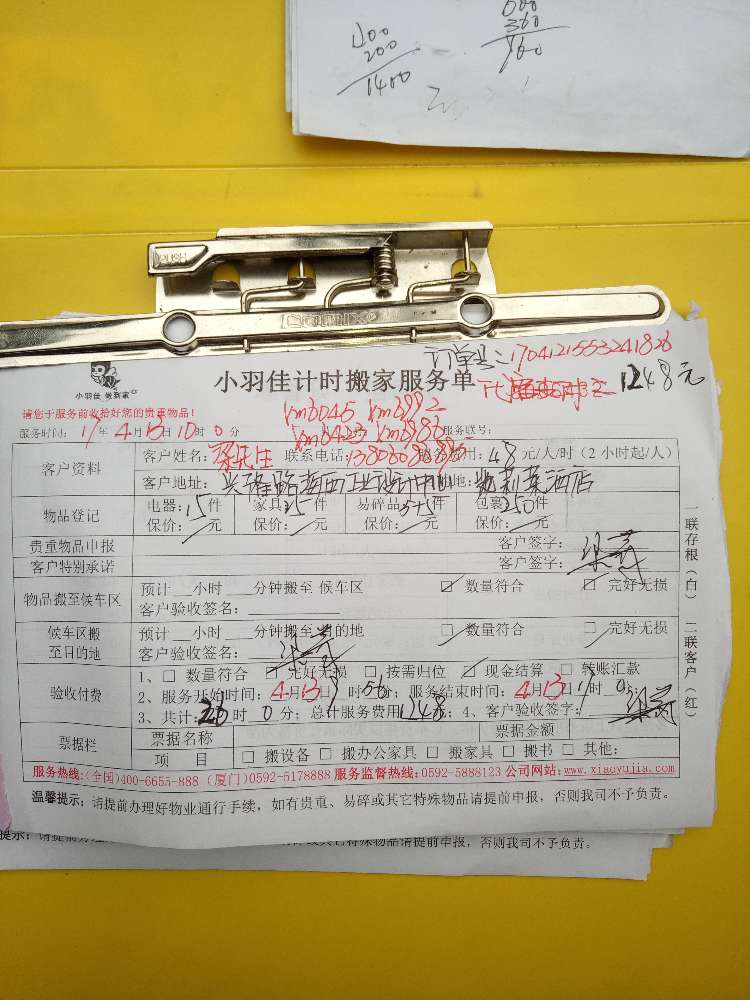 200
1400
360
PUSH
订单号：
小羽佳 做到家
小羽佳计时搬家服务单
1248元
请您于服务前收拾好您的贵重物品！
服务时间：17年4月13日10时0分
服务联号：
客户资料
客户姓名：
先生
联系电话：
费用：48元/人/时（2小时起/人）
客户地址：
酒店
物品登记
电器：15件 家具：35件 易碎品5+5件 包裹250件
保价：/元 保价：/元 保价：/元 保价：/元
贵重物品申报
客户签字：
客户特别承诺
客户签字：
物品搬至候车区
预计__小时__分钟搬至 候车区 ☑ 数量符合 □ 完好无损
客户验收签名：
候车区搬至目的地
预计__小时__分钟搬至 目的地 ☑ 数量符合 ☑ 完好无损
客户验收签名：
验收付费
1、□ 数量符合 ☑ 完好无损 □ 按需归位 ☑ 现金结算 □ 转账汇款
2、服务开始时间：4月13日 时 分；服务结束时间：4月13日 时 0分；
3、共计：26时0分；总计服务费用1248；4、客户验收签字：
票据栏
票据名称
票据金额
项 目
□ 搬设备 □ 搬办公家具 □ 搬家具 □ 搬书 □ 其他：
服务热线：(全国)400-6655-888 (厦门)0592-5178888 服务监督热线：0592-5888123 公司网站：www.xiaoyujia.com
温馨提示：请提前办理好物业通行手续，如有贵重、易碎或其它特殊物品请提前申报，否则我司不予负责。
一联存根（白） 二联客户（红）
特殊物品请提前申报，否则我司不予负责。